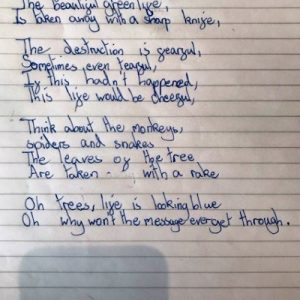 The beautiful green life,
Is taken away with a sharp knife,
The destruction is fearful,
Sometimes, even tearful,
If this hadn't happened,
This life would be cheerful,
Think about the monkeys,
spiders and snakes
The leaves of the tree
Are taken -- with a rake
Oh trees, life is looking blue
Oh why won't the message ever get through.